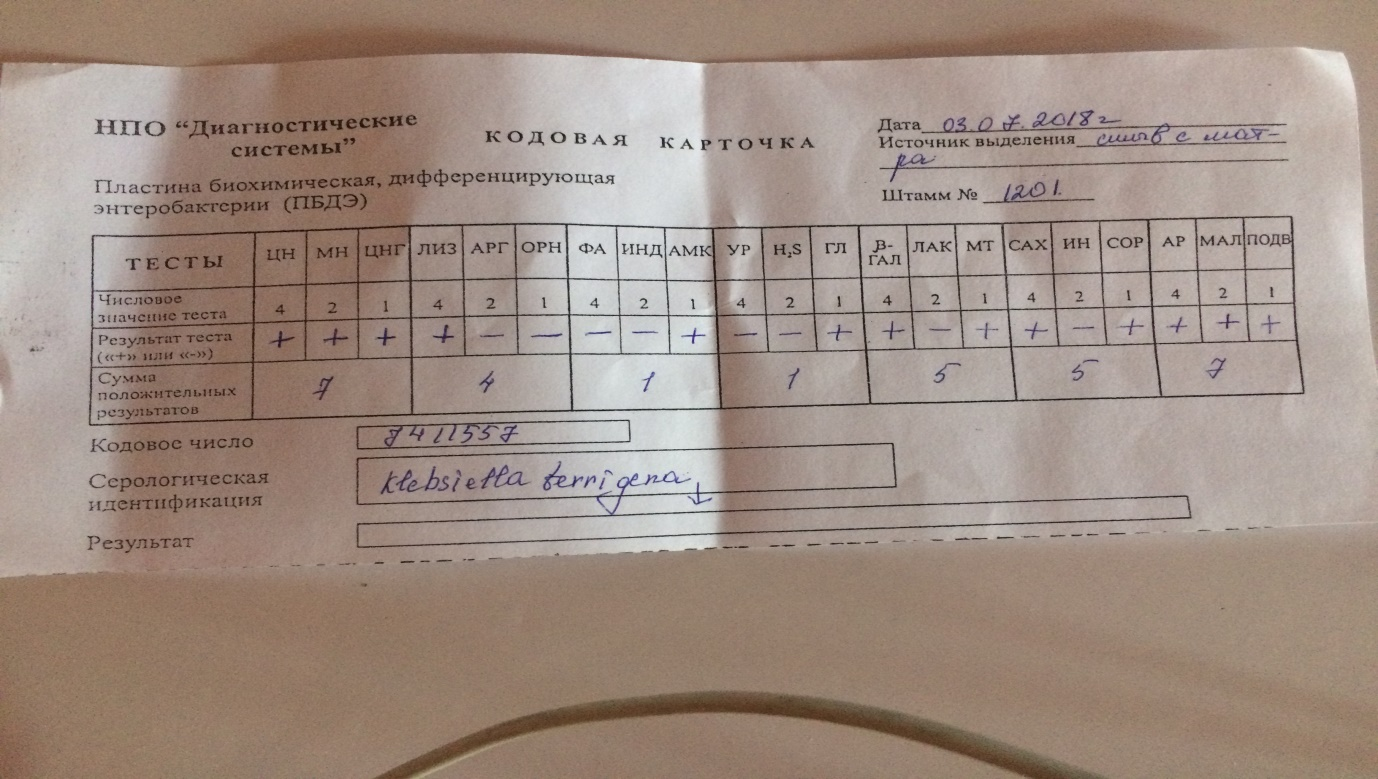 НПО “Диагностические
системы”
КОДОВАЯ КАРТОЧКА
Дата 03.07.2018г
Источник выделения смыв с мат-
ра
Штамм № 1201.
Пластина биохимическая, дифференцирующая
энтеробактерии (ПБДЭ)
ТЕСТЫ ЦН МН ЦНГ ЛИЗ АРГ ОРН ФА ИНД АМК УР H₂S ГЛ В-ГАЛ ЛАК МТ САХ ИН СОР АР МАЛ ПОДВ
Числовое
значение теста 4 2 1 4 2 1 4 2 1 4 2 1 4 2 1 4 2 1 4 2 1
Результат теста + + + + — — — — + — — + + — + + — + + + +
(«+» или «-»)
Сумма
положительных 7 4 1 1 5 5 7
результатов
Кодовое число 7411557
Серологическая
идентификация Klebsiella terrigena
Результат